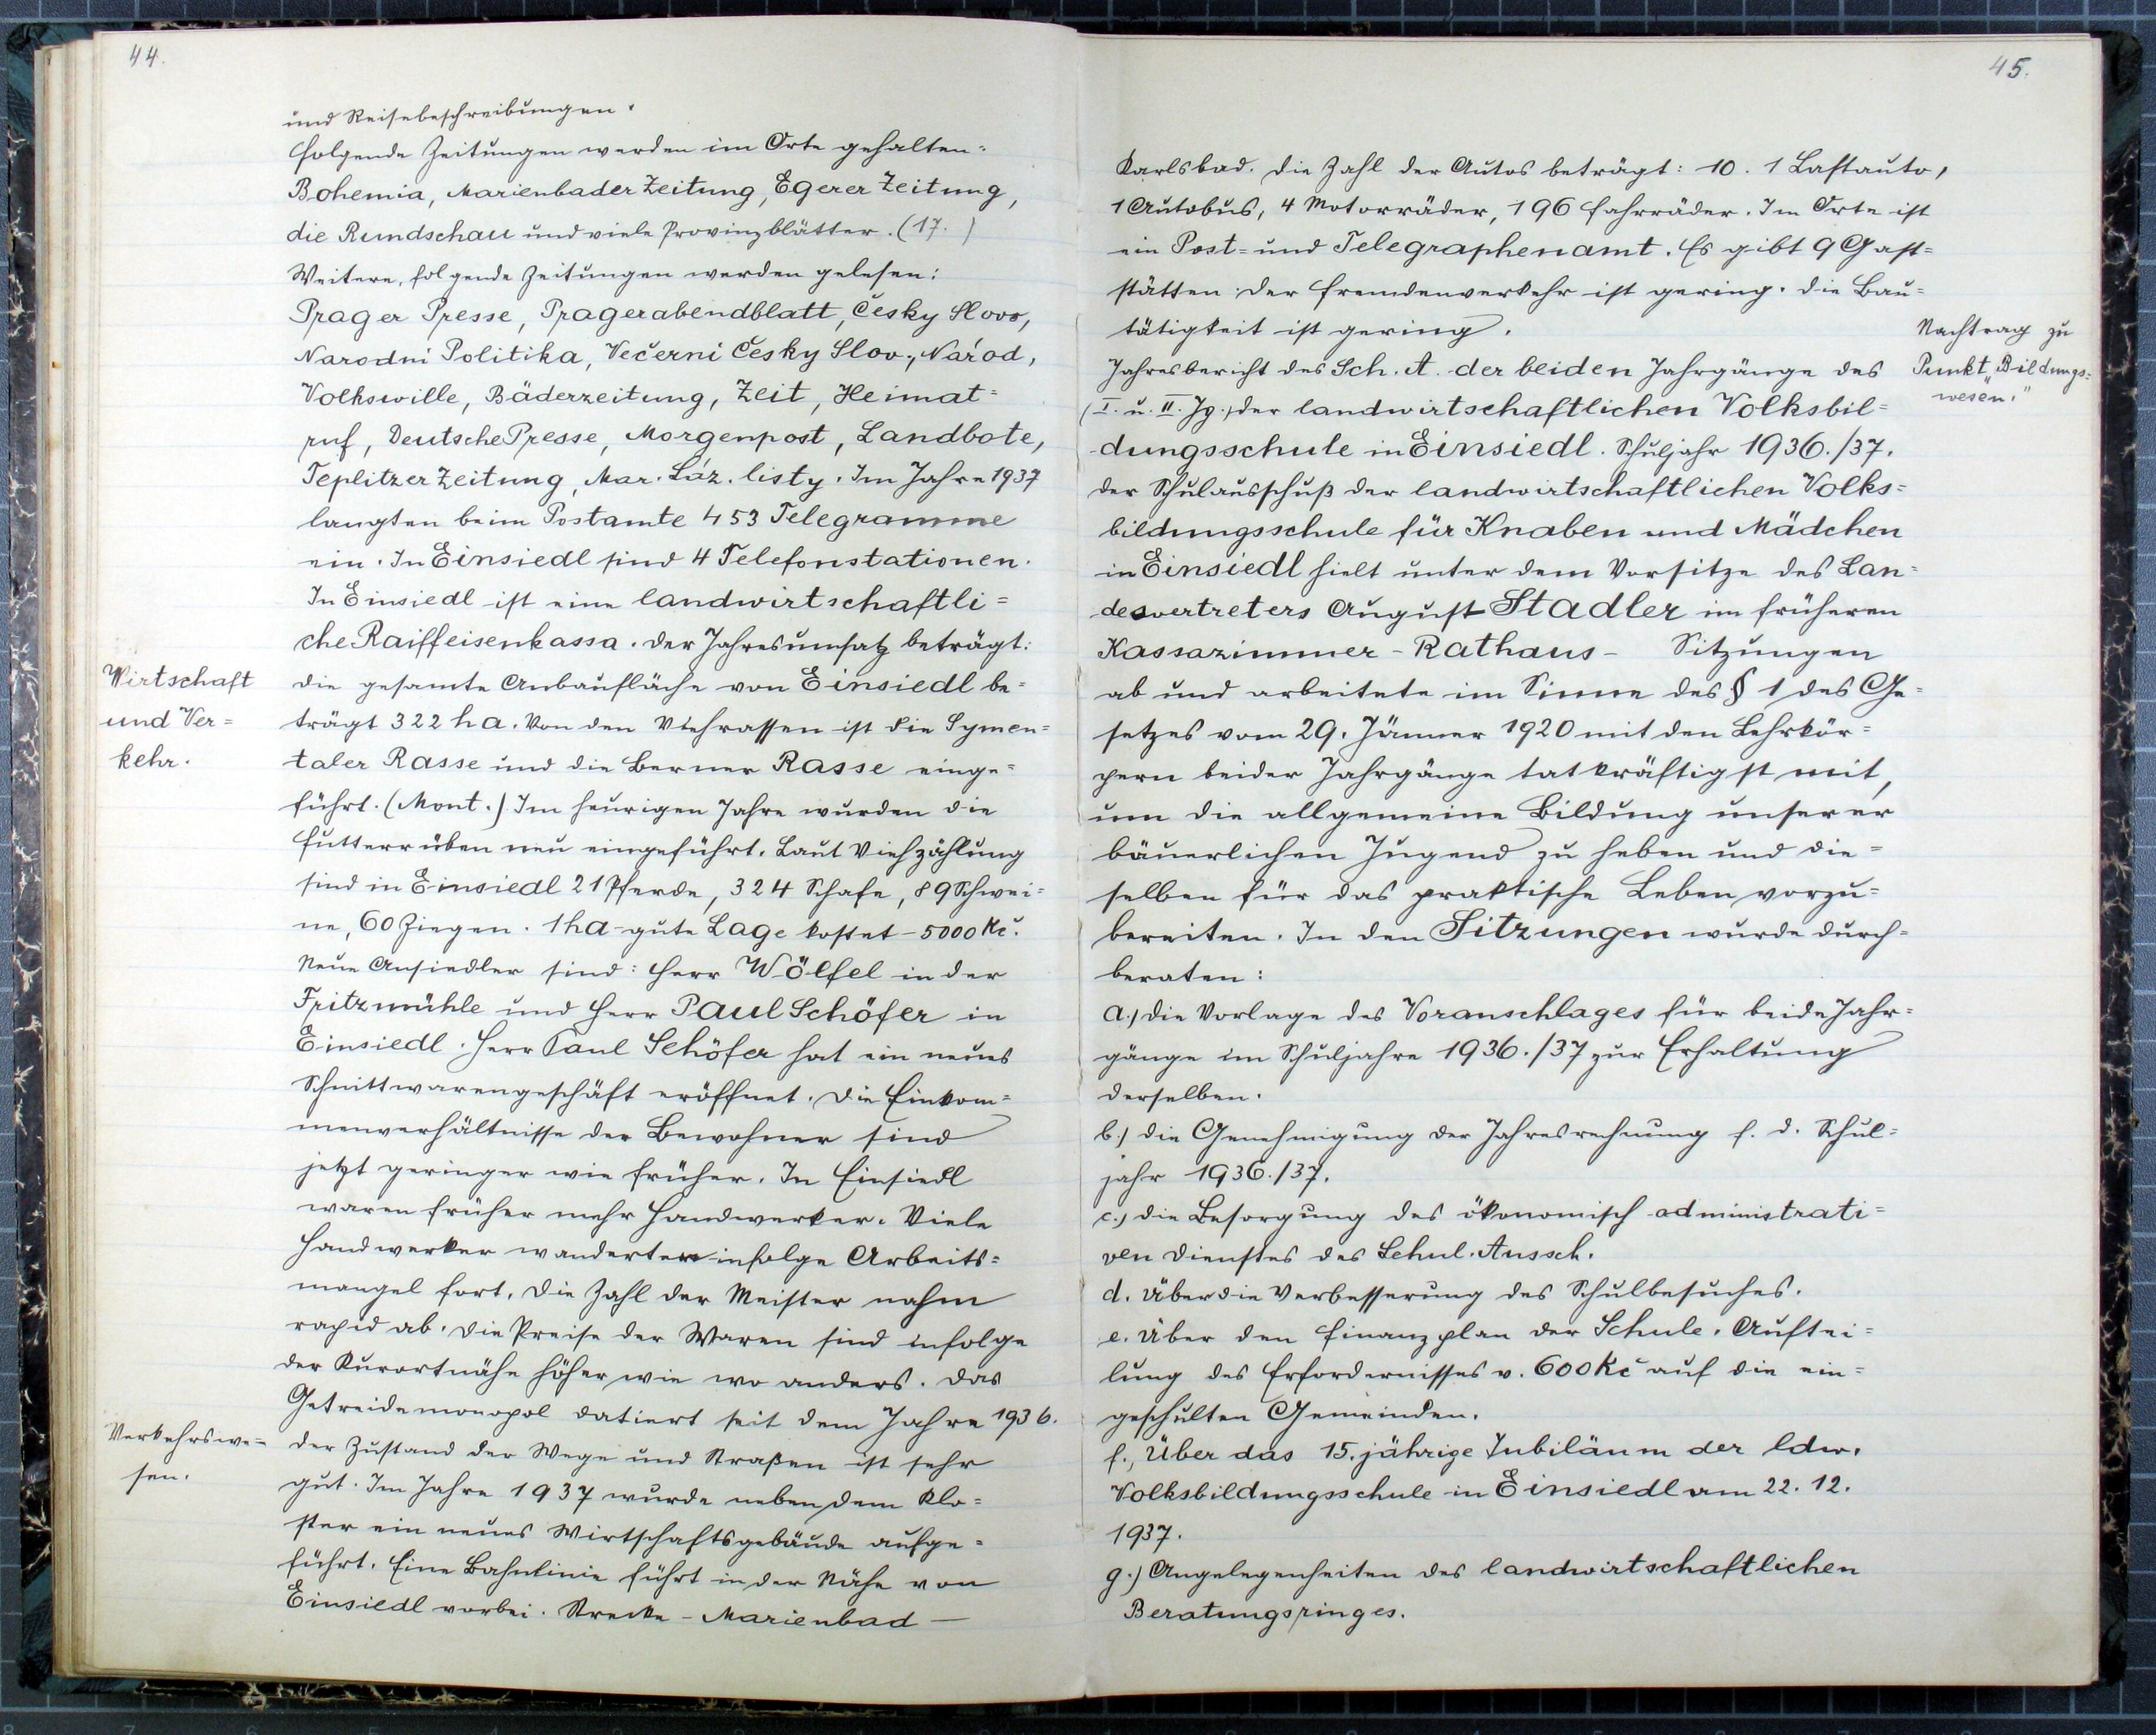 44.
und Reisebeschreibungen.
Folgende Zeitungen werden im Orte gehalten:
Bohemia, Marienbader Zeitung, Egerer Zeitung,
die Rundschau und viele Provinzblätter. (17.)
Weitere, folgende Zeitungen werden gelesen:
Prager Presse, Pragerabendblatt, Česky Slovo,
Narodni Politika, Večerni Česky Slov., Národ,
Volkswille, Bäderzeitung, Zeit, Heimat=
ruf, Deutsche Presse, Morgenpost, Landbote,
Teplitzer Zeitung, Mar. Láz. listy. Im Jahre 1937
langten beim Postamte 453 Telegramme
ein. In Einsiedl sind 4 Telefonstationen.
In Einsiedl ist eine landwirtschaftli=
che Raiffeisenkassa. Der Jahresumsatz beträgt:
Wirtschaft
und Ver=
kehr.
die gesamte Anbaufläche von Einsiedl be=
trägt 322 ha. Von den Viehrassen ist die Symen=
taler Rasse und die Berner Rasse einge=
führt. (Mont.) Im heurigen Jahre wurden die
Futterrüben neu eingeführt. Laut Viehzählung
sind in Einsiedl 21 Pferde, 324 Schafe, 89 Schwei=
ne, 60 Ziegen. 1 ha - gute Lage kostet - 5000 Kč.
Neue Ansiedler sind: Herr Wölfel in der
Fritzmühle und Herr Paul Schöfer in
Einsiedl. Herr Paul Schöfer hat ein neues
Schnittwarengeschäft eröffnet. Die Einkom=
menverhältnisse der Bewohner sind
jetzt geringer wie früher. In Einsiedl
waren früher mehr Handwerker. Viele
Handwerker wanderten infolge Arbeits=
mangel fort. Die Zahl der Meister nahm
rapid ab. Die Preise der Waren sind infolge
der Kurortnähe höher wie wo anders. Das
Getreidemonopol datiert seit dem Jahre 1936.
Verkehrswe=
sen.
Der Zustand der Wege und Straßen ist sehr
gut. Im Jahre 1937 wurde neben dem Klo=
ster ein neues Wirtschaftsgebäude aufge=
führt. Eine Bahnlinie führt in der Nähe von
Einsiedl vorbei. Strecke - Marienbad -
45.
Karlsbad. Die Zahl der Autos beträgt: 10. 1 Lastauto,
1 Autobus, 4 Motorräder, 196 Fahrräder. Im Orte ist
ein Post= und Telegraphenamt. Es gibt 9 Gast=
stätten. Der Fremdenverkehr ist gering. Die Bau=
tätigkeit ist gering.
Nachtrag zu
Punkt „Bildungs=
wesen."
Jahresbericht des Sch. A. der beiden Jahrgänge des
(I. u. II. Jg.) der landwirtschaftlichen Volksbil=
dungsschule in Einsiedl. Schuljahr 1936./37.
Der Schulausschuß der landwirtschaftlichen Volks=
bildungsschule für Knaben und Mädchen
in Einsiedl hielt unter dem Vorsitze des Lan=
desvertreters August Stadler im früheren
Kassazimmer - Rathaus - Sitzungen
ab und arbeitete im Sinne des § 1 des Ge=
setzes vom 29. Jänner 1920 mit den Lehrkör=
pern beider Jahrgänge tatkräftigst mit,
um die allgemeine Bildung unserer
bäuerlichen Jugend zu heben und die=
selben für das praktische Leben vorzu=
bereiten. In den Sitzungen wurde durch=
beraten:
a.) Die Vorlage des Voranschlages für beide Jahr=
gänge im Schuljahre 1936./37 zur Erhaltung
derselben.
b.) die Genehmigung der Jahresrechnung f. d. Schul=
jahr 1936./37.
c.) die Besorgung des ökonomisch-administrati=
ven Dienstes des Schul. Aussch.
d. Über die Verbesserung des Schulbesuches.
e. Über den Finanzplan der Schule. Auftei=
lung des Erfordernisses v. 600 Kč auf die ein=
geschulten Gemeinden.
f., Über das 15. jährige Jubiläum der ldw.
Volksbildungsschule in Einsiedl am 22. 12.
1937.
g.) Angelegenheiten des landwirtschaftlichen
Beratungsringes.